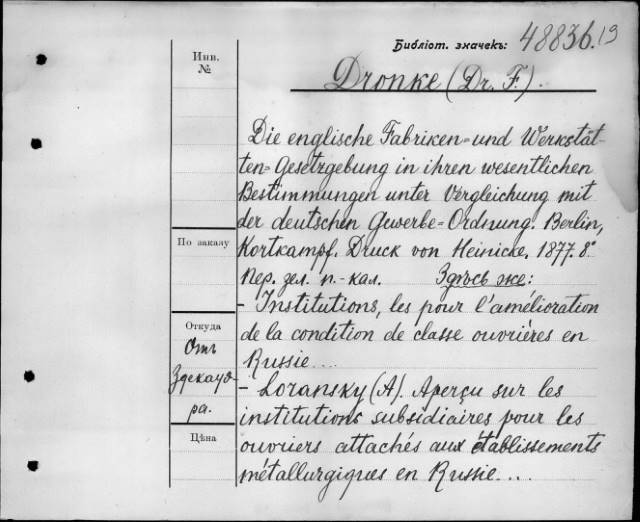 Библіот. значекъ: 48836.19
Инв.
№
Dronke (Dr. F.).
Die englische Fabriken- und Werkstät-
ten-Gesetzgebung in ihren wesentlichen
Bestimmungen unter Vergleichung mit
der deutschen Gewerbe-Ordnung. Berlin,
По заказу
Kortkampf. Druck von Heinicke. 1877. 8°
Пер. зел. п.-кал. Здѣсь же:
- Institutions, les pour l'amélioration
Откуда
de la condition de classe ouvrières en
Отъ
Russie....
Здекауэ-
- Loransky (A). Aperçu sur les
ра.
institutions subsidiaires pour les
Цѣна
ouvriers attachés aux établissements
métallurgiques en Russie....